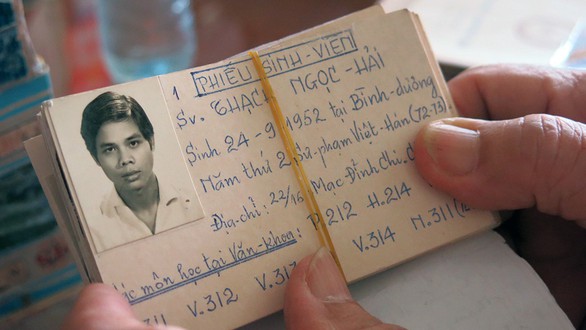 1 PHIẾU SINH-VIÊN
Sv. THẠCH NGỌC-HẢI
Sinh 24-9-1952 tại Bình-dương
Năm thứ 2 Sư-phạm Việt-Hán (72-73)
Địa-chỉ: 22/16 Mạc Đĩnh Chi.
môn học tại Văn-khoa: P.212 H.214
V.312 V.313 V.314 M.311